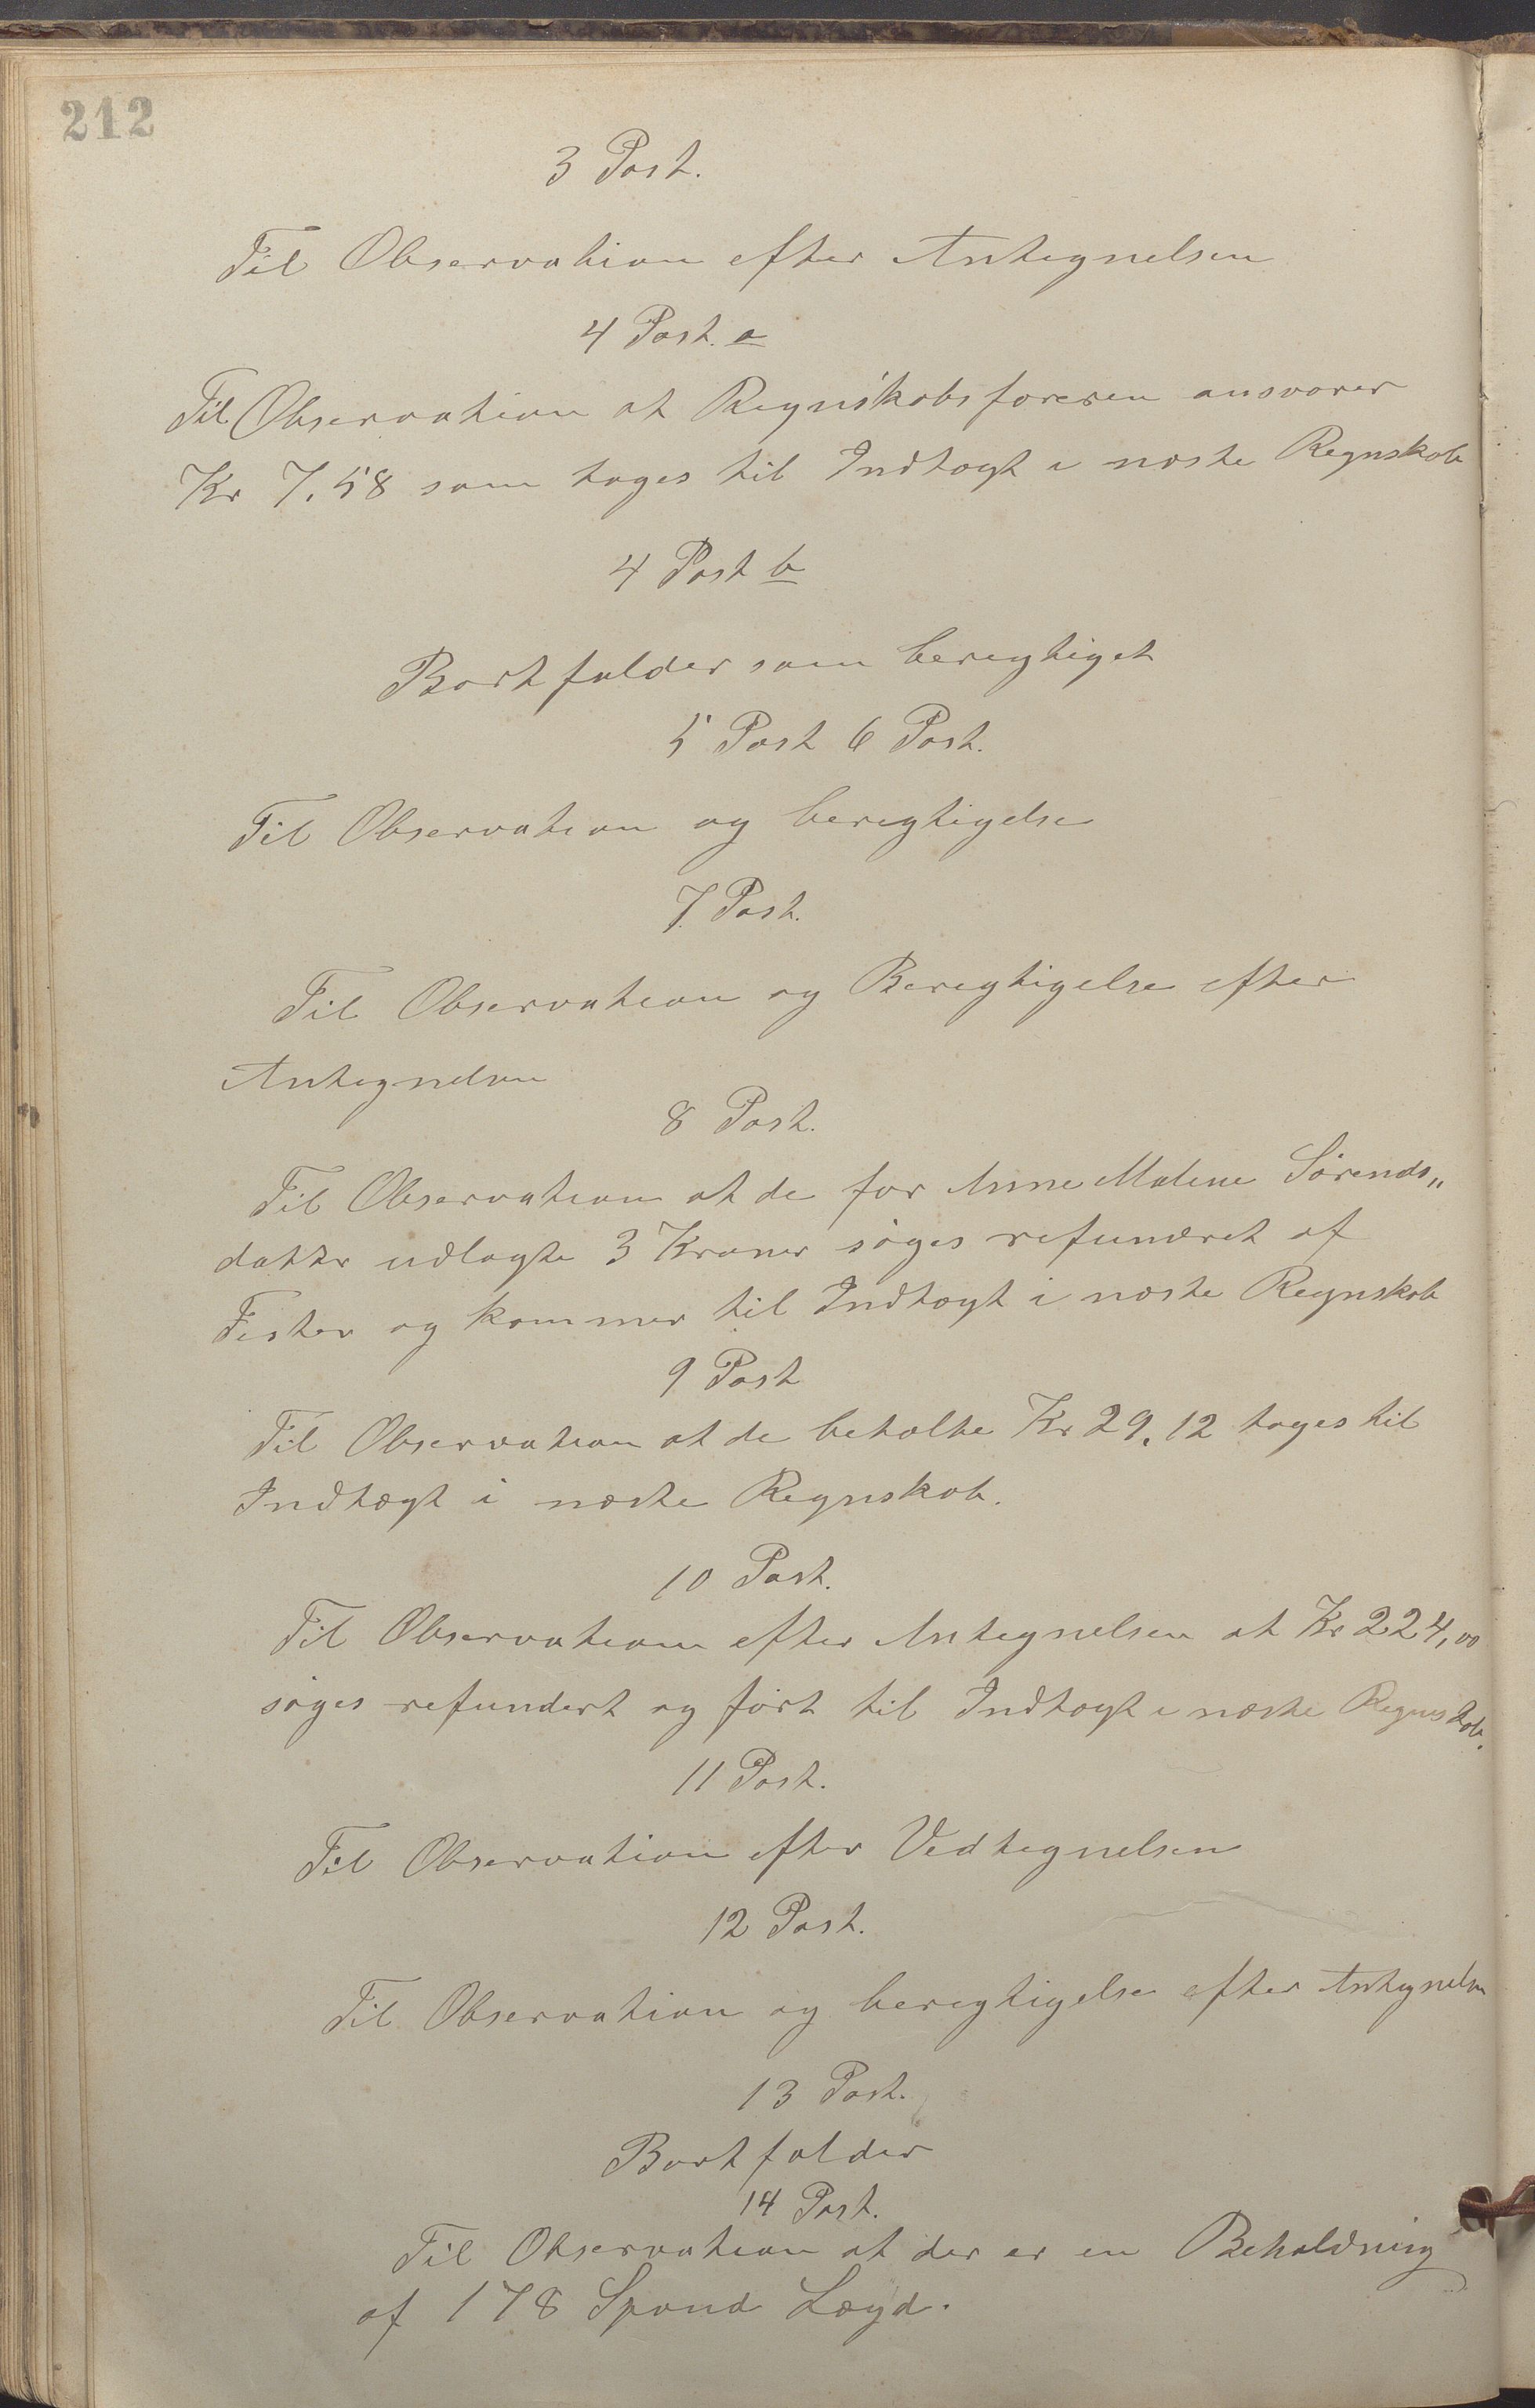 212
3 Post.
Til Observation efter Antegnelsen
4 Post. a
Til Observation at Regnskabsføreren ansvarer
Kr 7.58 som tages til Indtægt i næste Regnskab
4 Post b
Bortfalder som berigtiget
5 Post 6 Post.
Til Observation og berigtigelse
7 Post.
Til Observation og Berigtigelse efter
Antegnelsen
8 Post.
Til Observation at de for Anne Malene Sørends„
datter udlagte 3 Kroner søges refunderet af
og kommer til Indtægt i næste Regnskab
9 Post
Til Observation at de betalte Kr 29.12 tages til
Indtægt i næste Regnskab.
10 Post.
Til Observation efter Antegnelsen at Kr 224,00
søges refundert og ført til Indtægt i næste Regnskab.
11 Post.
Til Observation efter Vedtegnelsen
12 Post.
Til Observation og berigtigelse efter Antegnelsen
13 Post.
Bortfalder
14 Post.
Til Observation at der er en Beholdning
af 178 Spand